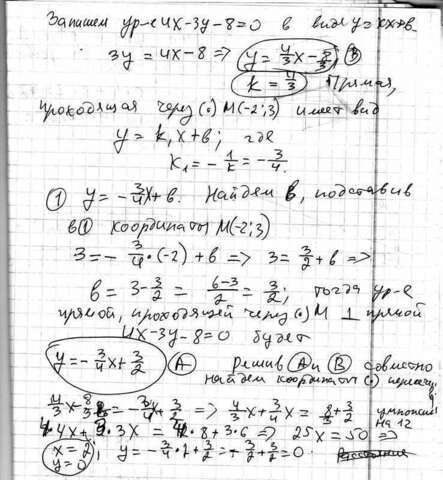 Запишем ур-е 4x-3y-8=0 в виде y=kx+b
3y = 4x-8 => y = 4/3 x - 8/3, B
k = 4/3 Прямая,
проходящая через (·) M(-2;3) имеет вид
y = k₁x+b; где
k₁ = - 1/k = - 3/4.
① y = - 3/4 x + b. Найдем b, подставив
в ① координаты M(-2;3)
3 = - 3/4 · (-2) + b => 3 = 3/2 + b =>
b = 3 - 3/2 = (6-3)/2 = 3/2; тогда ур-е
прямой, проходящей через (·) M ⊥ прямой
4x-3y-8=0 будет
y = - 3/4 x + 3/2 A Решив A и B совместно
найдем координаты (·) пересеч.
4/3 x - 8/3 = - 3/4 x + 3/2 => 4/3 x + 3/4 x = 8/3 + 3/2 умножим
на 12
4·4x + 3·3x = 4·8 + 3·6 => 25x = 50 =>
x = 2; y = - 3/4 · 2 + 3/2 = - 3/2 + 3/2 = 0.
y = 0